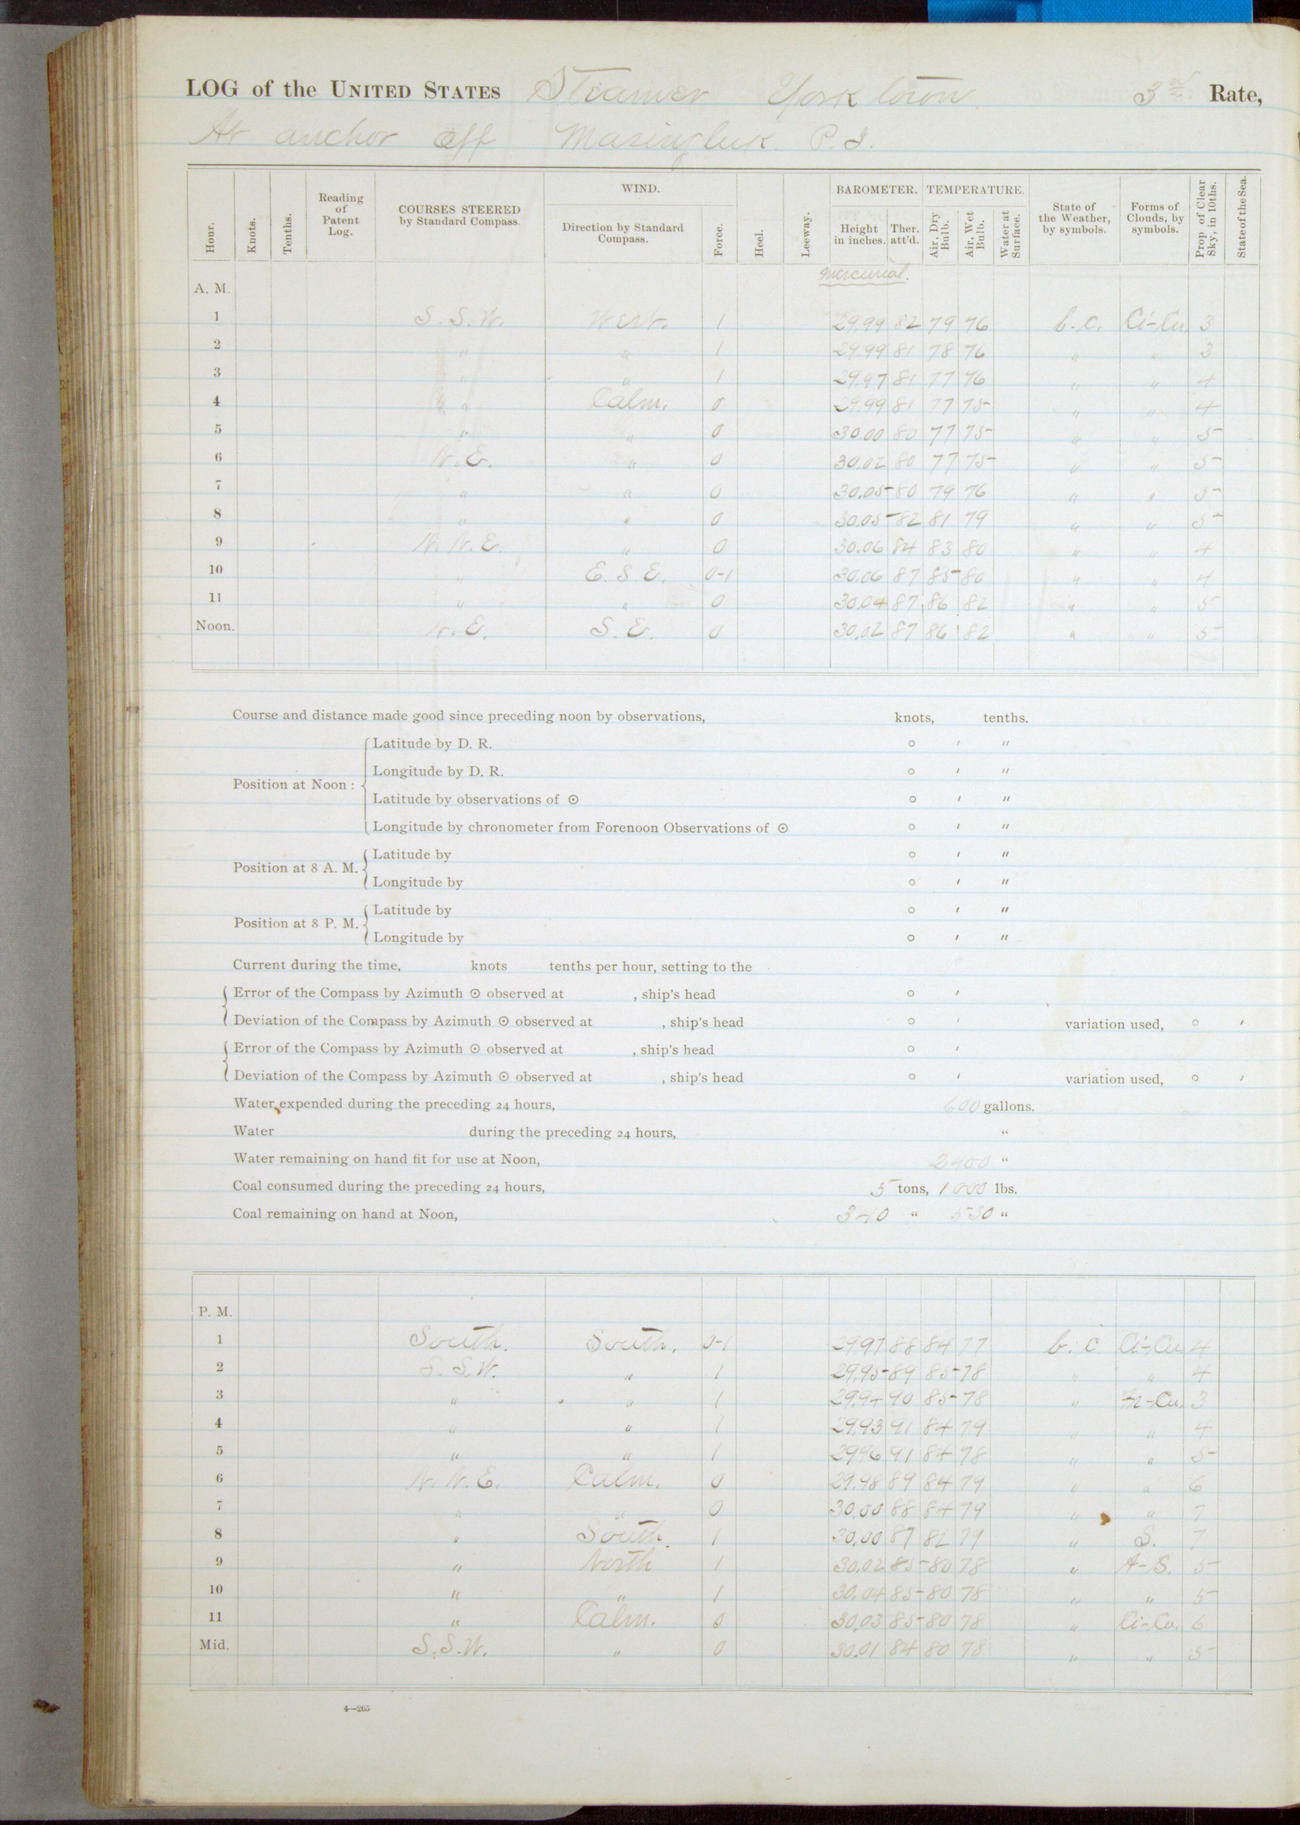 LOG of the UNITED STATES Steamer Yorktown 3rd Rate,
At anchor off Masingluk. P. I.
Hour. Knots. Tenths. Reading of Patent Log. COURSES STEERED by Standard Compass. WIND. Direction by Standard Compass. Force. Heel. Leeway. BAROMETER. Height in inches. Ther. att'd. TEMPERATURE. Air, Dry Bulb. Air, Wet Bulb. Water at Surface. State of the Weather, by symbols. Forms of Clouds, by symbols. Prop of Clear Sky, in 10ths. State of the Sea.
Mercurial.
A. M.
1 S. S. W. West. 1 29.99 82 79 76 b.c. Ci-Cu 3
2 " " 1 29.99 81 78 76 " " 3
3 " " 1 29.97 81 77 76 " " 4
4 " Calm. 0 29.99 81 77 75 " " 4
5 " " 0 30.00 80 77 75 " " 5
6 N. E. " 0 30.02 80 77 75 " " 5
7 " " 0 30.05 80 79 76 " " 5
8 " " 0 30.05 82 81 79 " " 5
9 N. N. E. " 0 30.06 84 83 80 " " 4
10 " E. S. E. 0-1 30.06 87 85 80 " " 4
11 " " 0 30.04 87 86 82 " " 5
Noon. N. E. S. E. 0 30.02 87 86 82 " " 5
Course and distance made good since preceding noon by observations, knots, tenths.
Position at Noon :
Latitude by D. R. ° ′ ″
Longitude by D. R. ° ′ ″
Latitude by observations of ⊙ ° ′ ″
Longitude by chronometer from Forenoon Observations of ⊙ ° ′ ″
Position at 8 A. M.
Latitude by ° ′ ″
Longitude by ° ′ ″
Position at 8 P. M.
Latitude by ° ′ ″
Longitude by ° ′ ″
Current during the time, knots tenths per hour, setting to the
Error of the Compass by Azimuth ⊙ observed at , ship's head ° ′
Deviation of the Compass by Azimuth ⊙ observed at , ship's head ° ′ variation used, ° ′
Error of the Compass by Azimuth ⊙ observed at , ship's head ° ′
Deviation of the Compass by Azimuth ⊙ observed at , ship's head ° ′ variation used, ° ′
Water expended during the preceding 24 hours, 600 gallons.
Water during the preceding 24 hours, "
Water remaining on hand fit for use at Noon, 2400 "
Coal consumed during the preceding 24 hours, 5 tons, 1000 lbs.
Coal remaining on hand at Noon, 340 " 530 "
P. M.
1 South. South. 0-1 29.97 88 84 77 b.c. Ci-Cu 4
2 S. S. W. " 1 29.95 89 85 78 " " 4
3 " " 1 29.94 90 85 78 " Fr-Cu. 3
4 " " 1 29.93 91 84 79 " " 4
5 " " 1 29.96 91 84 78 " " 5
6 N. N. E. Calm. 0 29.98 89 84 79 " " 6
7 " " 0 30.00 88 84 79 " " 7
8 " South. 1 30.00 87 82 79 " S. 7
9 " North 1 30.02 85 80 78 " A-S. 5
10 " " 1 30.04 85 80 78 " " 5
11 " Calm. 0 30.03 85 80 78 " Ci-Cu. 6
Mid. S. S. W. " 0 30.01 84 80 78 " " 5
4—265